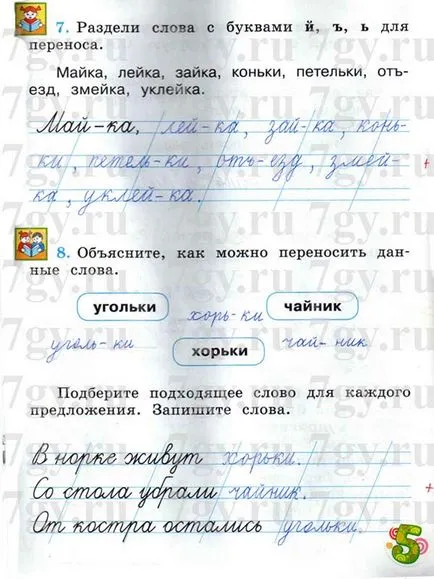 7. Раздели слова с буквами й, ъ, ь для
переноса.
Майка, лейка, зайка, коньки, петельки, отъ-
езд, змейка, уклейка.
Май-ка, лей-ка, зай-ка, конь-
ки, петель-ки, отъ-езд, змей-
ка, уклей-ка.
8. Объясните, как можно переносить дан-
ные слова.
угольки хорь-ки чайник
уголь-ки хорьки чай-ник
Подберите подходящее слово для каждого
предложения. Запишите слова.
В норке живут хорьки.
Со стола убрали чайник.
От костра остались угольки.
5
7gy.ru